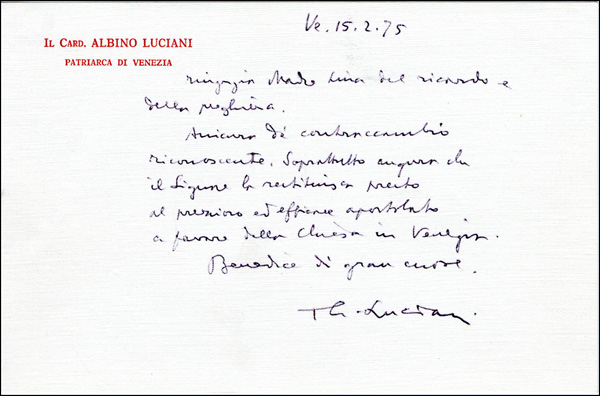 Ve. 15.2.75
IL CARD. ALBINO LUCIANI
PATRIARCA DI VENEZIA
ringrazia Madre Lina del ricordo e
della preghiera.
Assicura di contraccambio
riconoscente. Soprattutto augura che
il Signore la restituisca presto
al prezioso ed efficace apostolato
a favore della Chiesa in Venezia.
Benedice di gran cuore.
Luciani